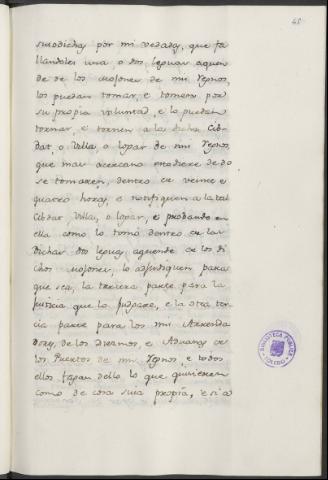 48
susodichas por mi vedadas, que fa
llandoles una, o dos leguas aquen
de de los Mojones de mis Regnos,
los puedan tomar, e tomen por
su propia voluntad, e lo puedan
tornar, e tornen a la dicha Cib-
dat, o Villa, o logar de mis Regnos,
que mas acercano estoviere dedo
se tomaren, dentro en veinte e
quatro horas, e notifiquen a la tal
Cibdat, Villa, o logar, e probando en
ella como lo tomó dentro en las
dichas dos leguas aquende de los di
chos Mojones, lo adjudiquen para
que sea, la tercera parte para la
justicia que lo judgare, e la otra ter
cia parte para los mis Arrenda
dores, de los Diezmos, e Aduanas de
los Puertos de mis Regnos, e todos
ellos fagan dello lo que quisieren
como de cosa suia propia, e si a
BIBLIOTECA PUBLICA
TOLEDO